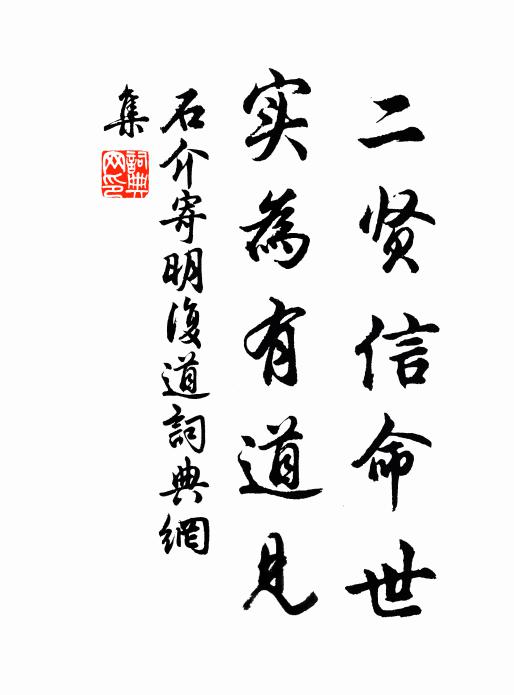 二贤信命世
实為有道見
石介寄明復道詞典網
集
詞典网印